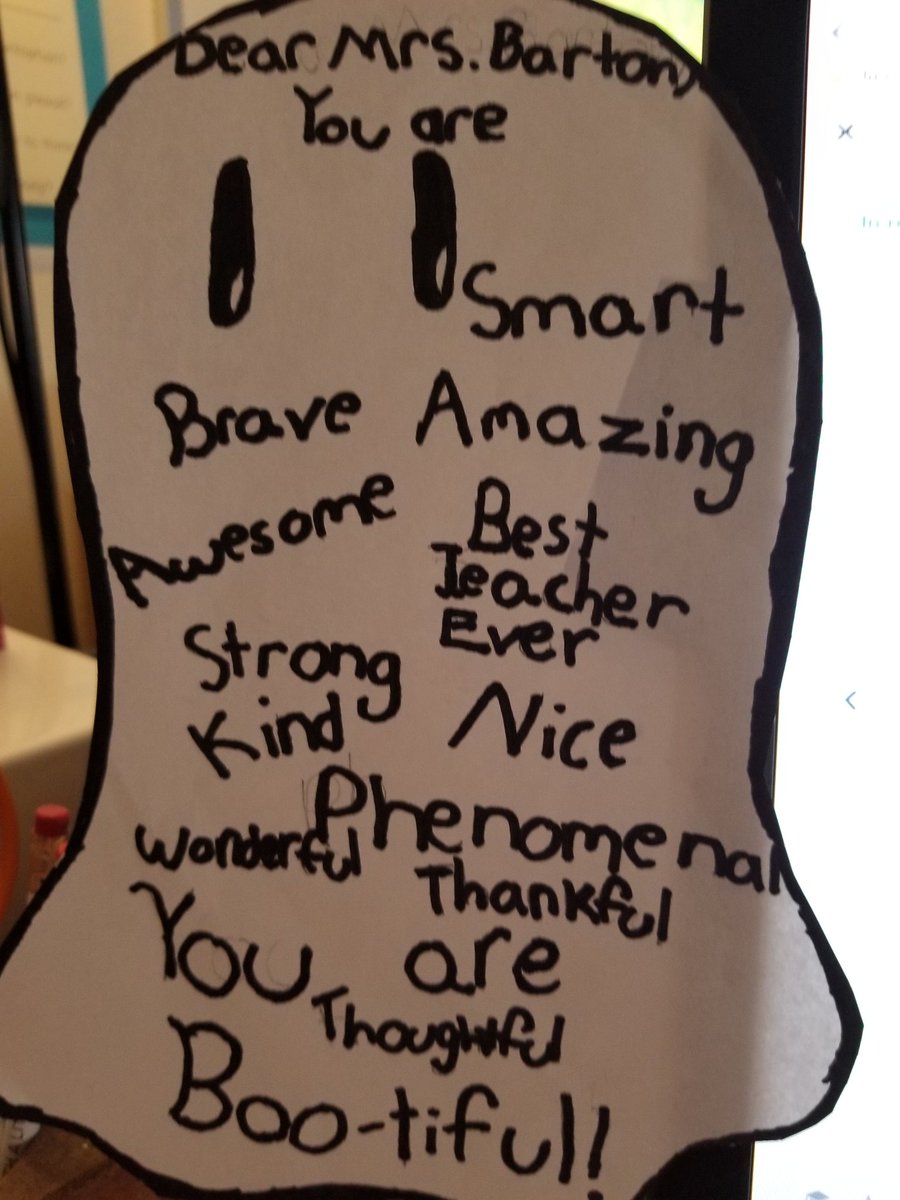 Dear Mrs. Barton,
You are
Smart
Brave Amazing
Awesome
Best
Teacher
Ever
Strong
Kind Nice
Phenomenal
Wonderful
Thankful
You are
Thoughtful
Boo-tiful!